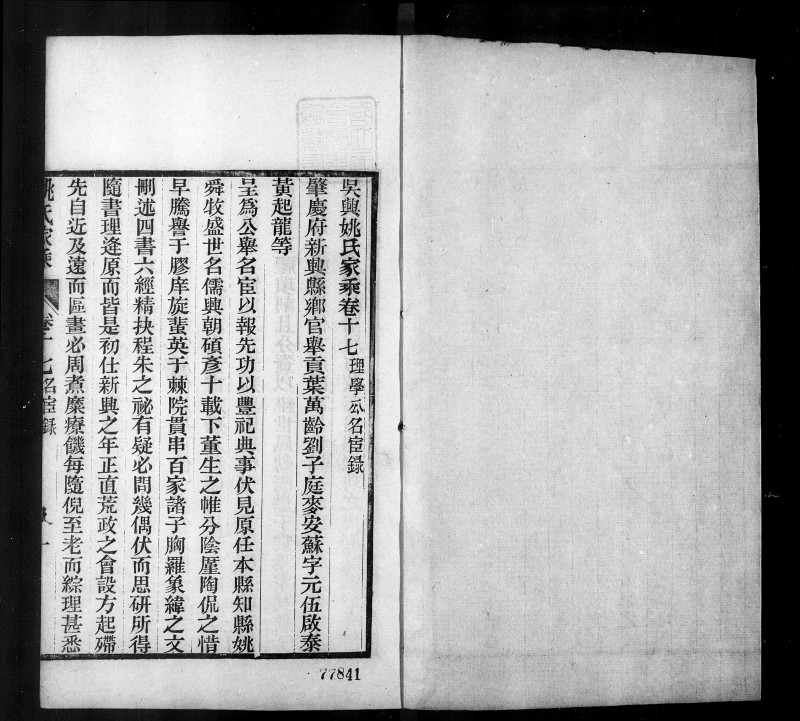 吳興姚氏家乘卷十七 理學公名宦錄
肇慶府新興縣鄉官舉貢葉萬齡劉子庭麥安蘇字元伍啟泰
黃起龍等
呈爲公舉名宦以報先功以豐祀典事伏見原任本縣知縣姚
舜牧盛世名儒興朝碩彥十載下董生之帷分陰厪陶侃之惜
早騰譽于膠庠旋蜚英于棘院貫串百家諸子胸羅象緯之文
刪述四書六經精抉程朱之祕有疑必問幾偶伏而思硏所得
隨書理逢原而皆是初仕新興之年正直荒政之會設方起殢
先自近及遠而區畫必周煮糜療饑每隨倪至老而綜理甚悉
姚氏家乘 卷十七名宦錄 一
77841